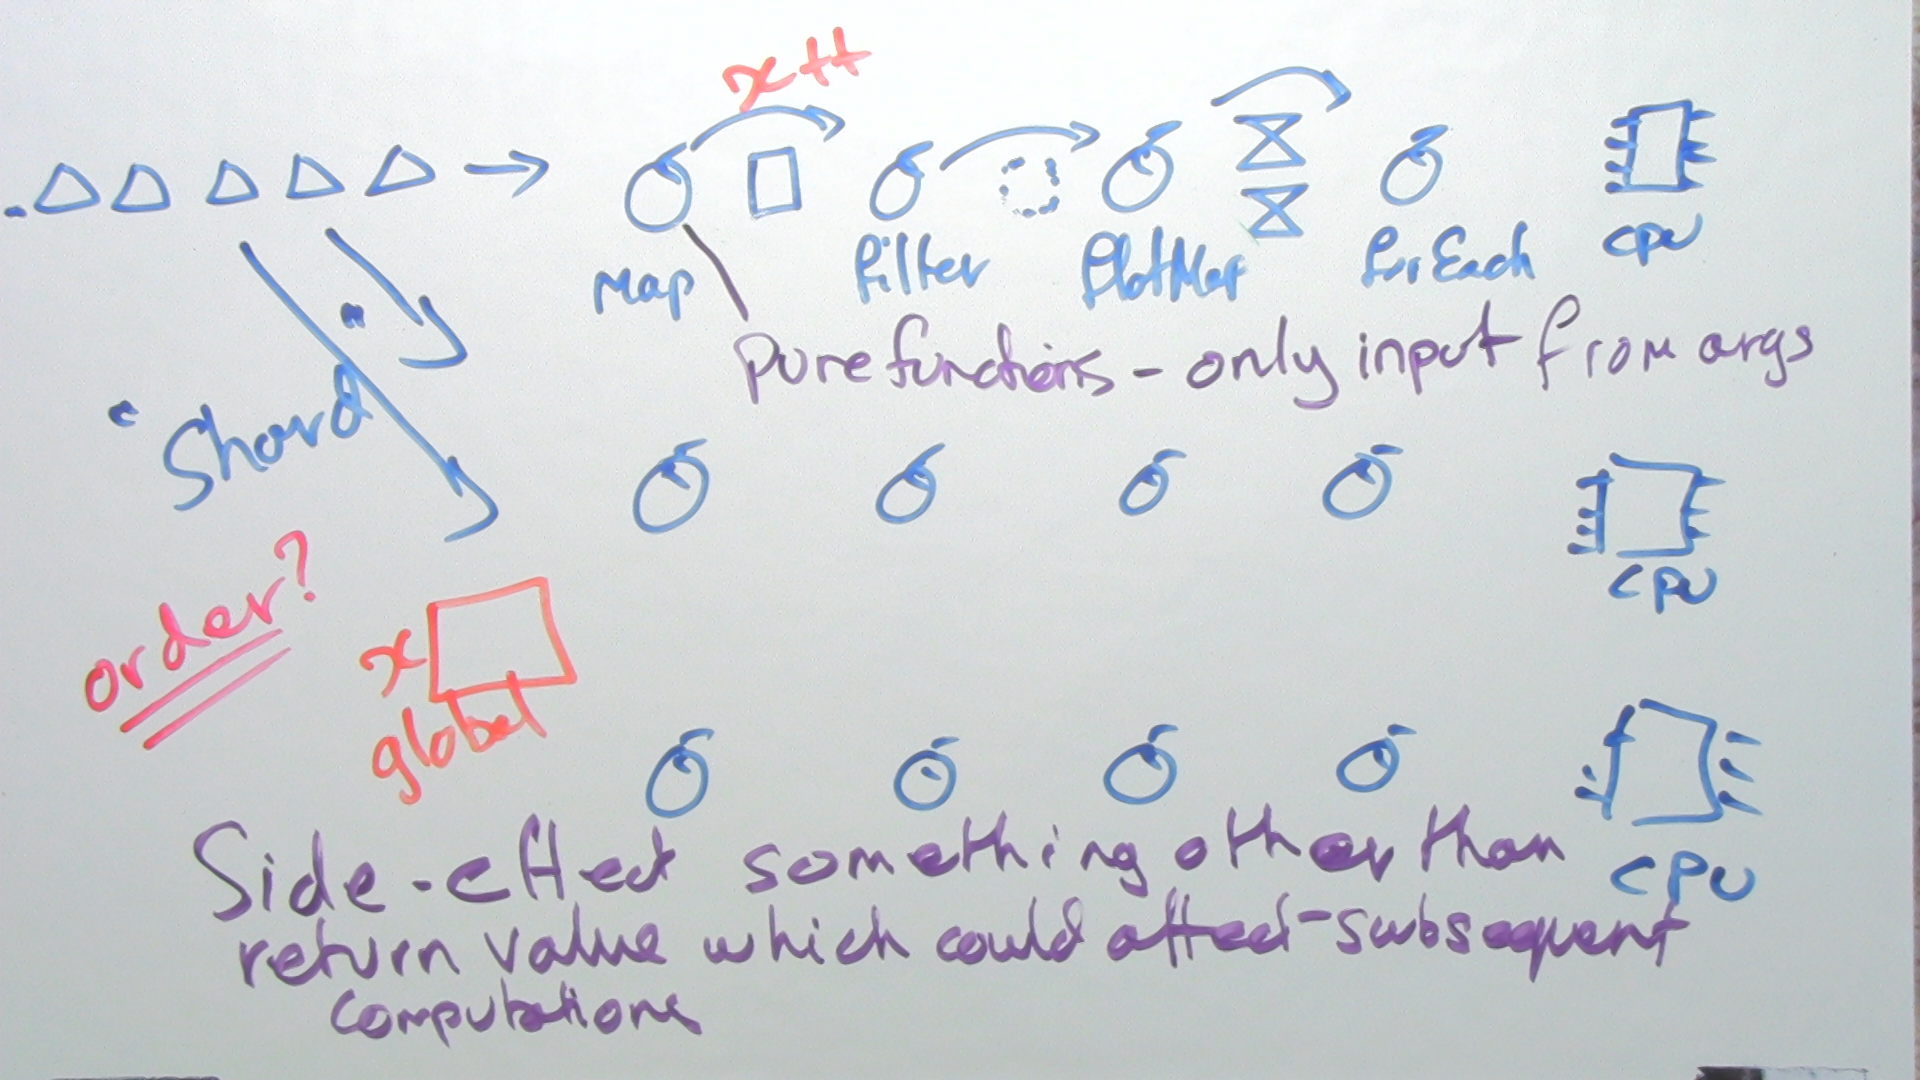 x++
CPU
Map
filter
flatMap
forEach
pure functions - only input from args
"Shard"
CPU
order?
x
global
Side-effect something other than
return value which could affect subsequent
computations
CPU